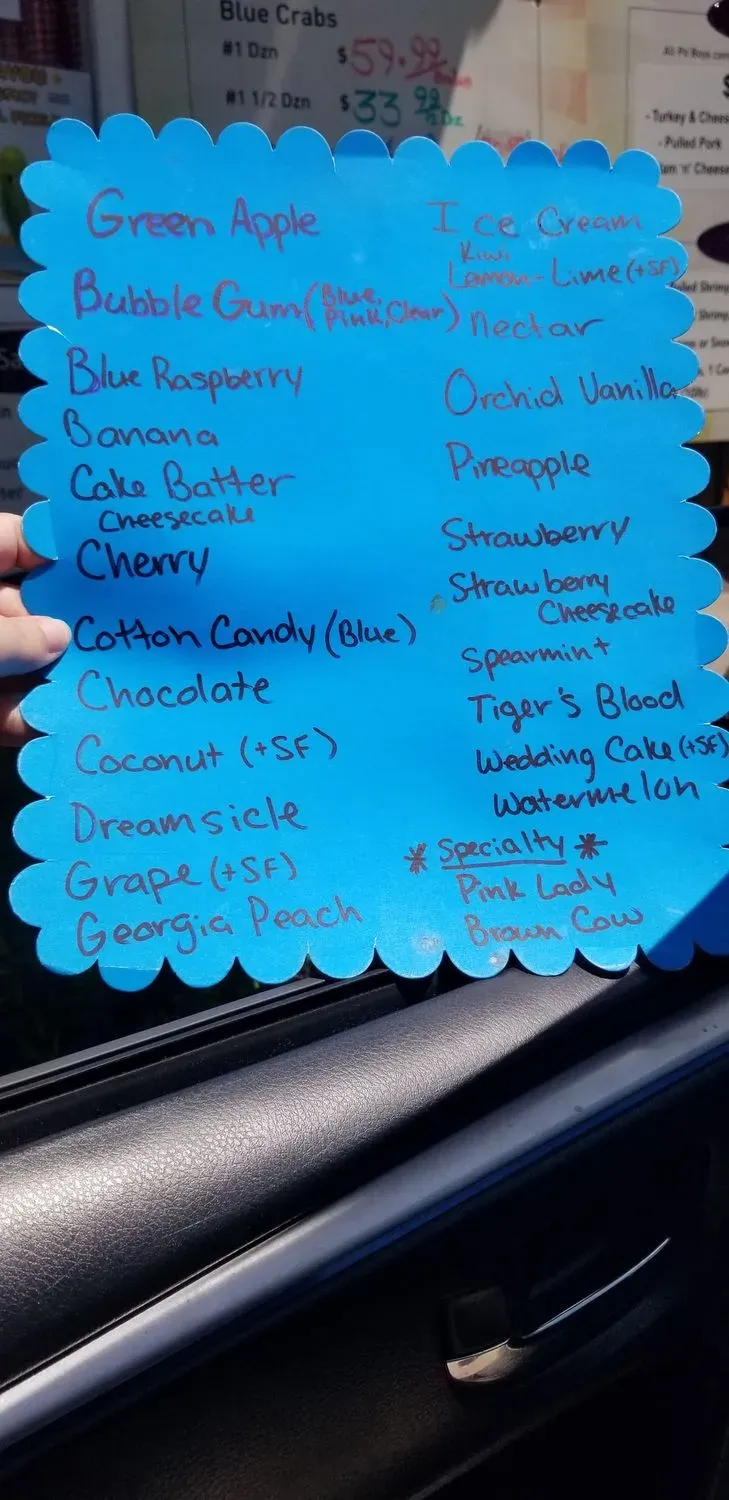 Blue Crabs
#1 Dzn $59.99
#1 1/2 Dzn $33 99
- Turkey & Chees
- Pulled Pork
Green Apple
Bubble Gum (Blue, Pink, Clear)
Blue Raspberry
Banana
Cake Batter
Cheesecake
Cherry
Cotton Candy (Blue)
Chocolate
Coconut (+SF)
Dreamsicle
Grape (+SF)
Georgia Peach
Ice Cream
Kiwi
Lemon-Lime (+SF)
Nectar
Orchid Vanilla
Pineapple
Strawberry
Strawberry
Cheesecake
Spearmint
Tiger's Blood
Wedding Cake (+SF)
Watermelon
* Specialty *
Pink Lady
Brown Cow